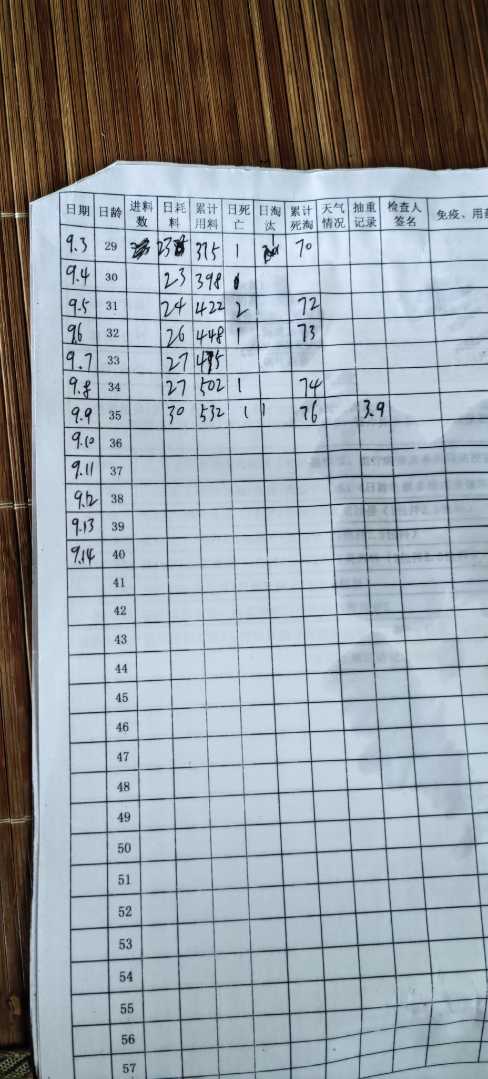 日期 日龄 进料数 日耗料 累计用料 日死亡 日淘汰 累计死淘 天气情况 抽重记录 检查人签名 免疫、用药
9.3 29 23 375 1 70
9.4 30 23 398
9.5 31 24 422 2 72
9.6 32 26 448 1 73
9.7 33 27 475
9.8 34 27 502 1 74
9.9 35 30 532 1 1 76 3.9
9.10 36
9.11 37
9.12 38
9.13 39
9.14 40
41
42
43
44
45
46
47
48
49
50
51
52
53
54
55
56
57